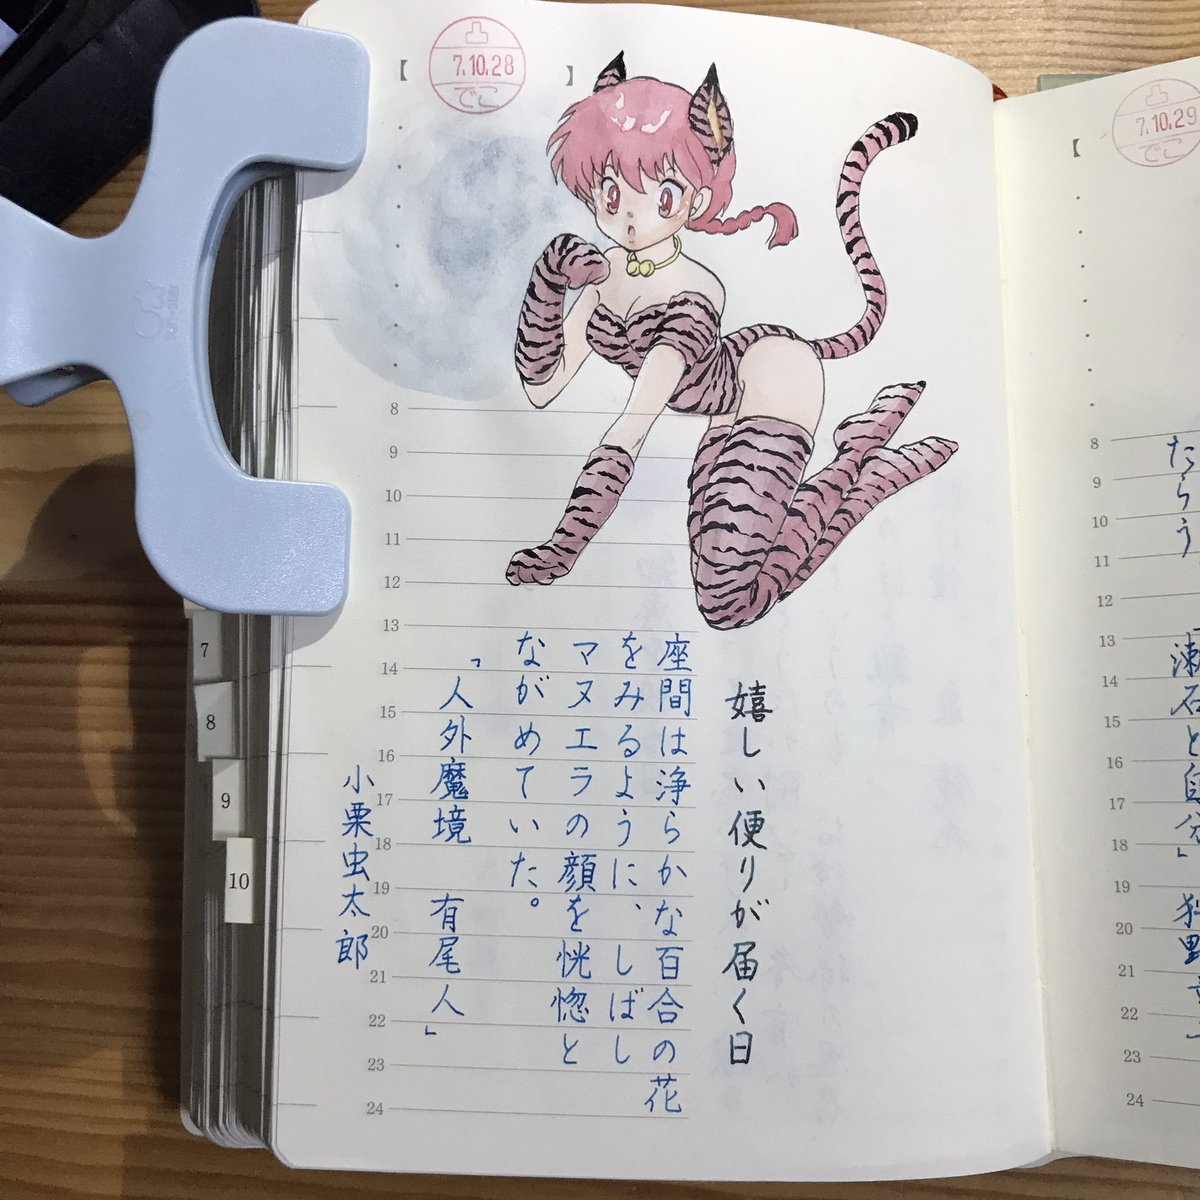 凸
7.10.28
でこ
【 】
嬉しい便りが届く日
座間は浄らかな百合の花
をみるように、しばし
マヌエラの顔を恍惚と
ながめていた。
「人外魔境 有尾人」
小栗虫太郎
8
9
10
11
12
13
14
15
16
17
18
19
20
21
22
23
24
7
8
9
10
凸
7.10.29
でこ
【
たらう
漱石と自分」
8
9
10
11
12
13
14
15
16
17
18
19
20
21
22
23
24